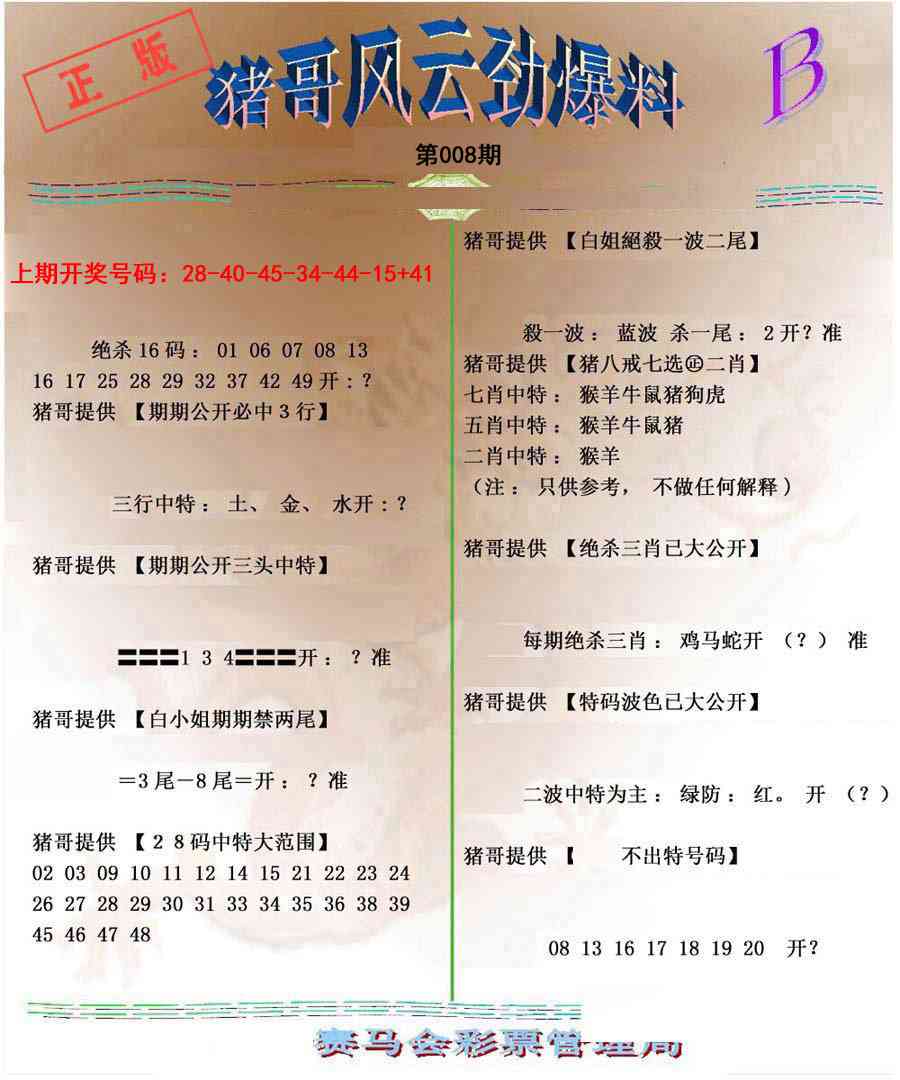 正版
猪哥风云劲爆料
B
第008期
上期开奖号码：28-40-45-34-44-15+41
绝杀16码：01 06 07 08 13
16 17 25 28 29 32 37 42 49开：？
猪哥提供 【期期公开必中3行】
三行中特： 土、 金、 水开：？
猪哥提供 【期期公开三头中特】
〓〓〓1 3 4〓〓〓开： ？准
猪哥提供 【白小姐期期禁两尾】
＝3尾－8尾＝开： ？准
猪哥提供 【２８码中特大范围】
02 03 09 10 11 12 14 15 21 22 23 24
26 27 28 29 30 31 33 34 35 36 38 39
45 46 47 48
猪哥提供 【白姐絕殺一波二尾】
殺一波： 蓝波 杀一尾： 2开？准
猪哥提供 【猪八戒七选㊣二肖】
七肖中特： 猴羊牛鼠猪狗虎
五肖中特： 猴羊牛鼠猪
二肖中特： 猴羊
（注： 只供参考， 不做任何解释）
猪哥提供 【绝杀三肖已大公开】
每期绝杀三肖： 鸡马蛇开 （？） 准
猪哥提供 【特码波色已大公开】
二波中特为主： 绿防： 红。 开 （？）
猪哥提供 【 不出特号码】
08 13 16 17 18 19 20 开？
赛马会彩票管理局